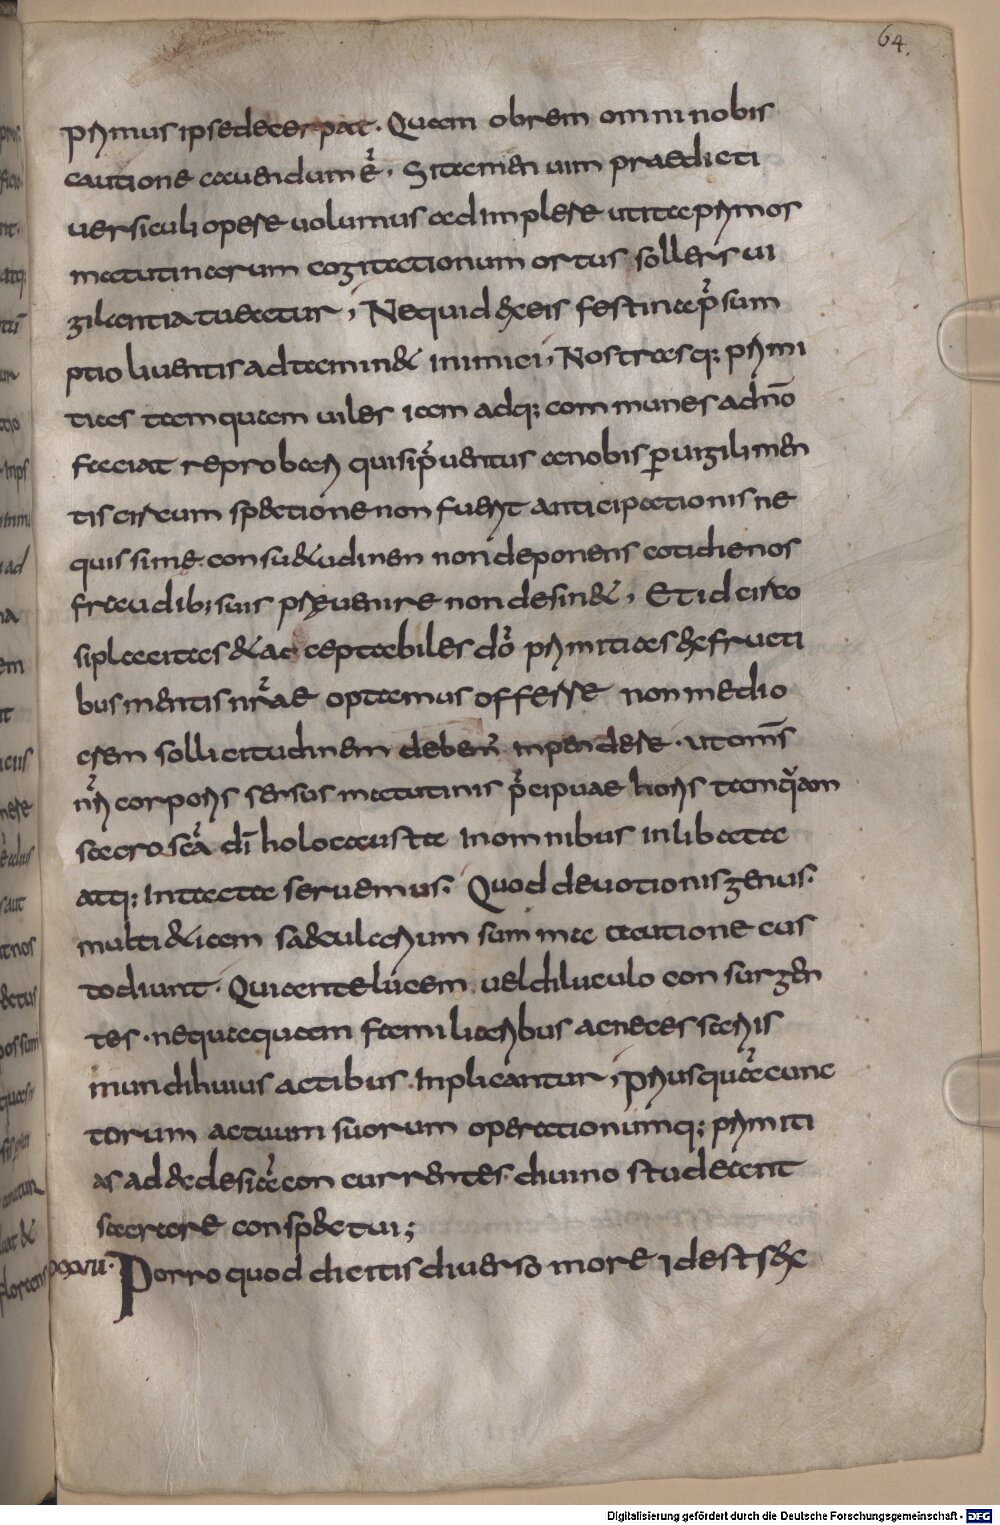 64.
primus ipse decerpat. Quam obrem omni nobis
cautione cauendum ē. Si tamen uim praedicti
uersiculi opere uolumus adimplere ut ita primos
matutinarum cogitationum ortus sollers ui
gilantia tueatur, Nequid ex eis festina p̄sum
ptio liuentis adtaminet inimici, Nostrasq; primi
tias tamquam uiles iam adq; communes ad n̄o
faciat reprobari quisi p̄uentus a nobis puigili men
tis circumspectione non fuerit anticipationis ne
quissime consuetudinem non deponens cotidie nos
fraudib; suis preuenire non desinet, Et idcirco
si placitas et acceptabiles d̄o primitias ex fructi
bus mentis n̄rae optamus offerre non medio
crem sollicitudinem debem' inpendere. ut om̄s
n̄ri corporis sensus matutinis p̄cipuae horis tamq̄am
sacrosc̄a d̄i holocausta in omnibus inlibata
atq; intacta seruemus. Quod deuotionis genus.
multi etiam saecularium summa cautione cus
todiunt. Qui ante lucem uel diluculo consurgen
tes. nequaquam familiaribus ac necessariis
mundi huius actibus inplicantur, priusquā cunc
torum actuum suorum operationumq; primiti
as ad aecclesiā concurrentes. diuino studeant
sacrare conspectui;
XXVII. Porro quod dicitis diuerso more idest sex
Digitalisierung gefördert durch die Deutsche Forschungsgemeinschaft - DFG